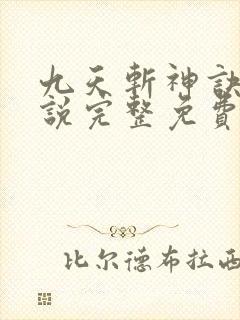 九天斬神訣
說完整免費
比尔德布拉西